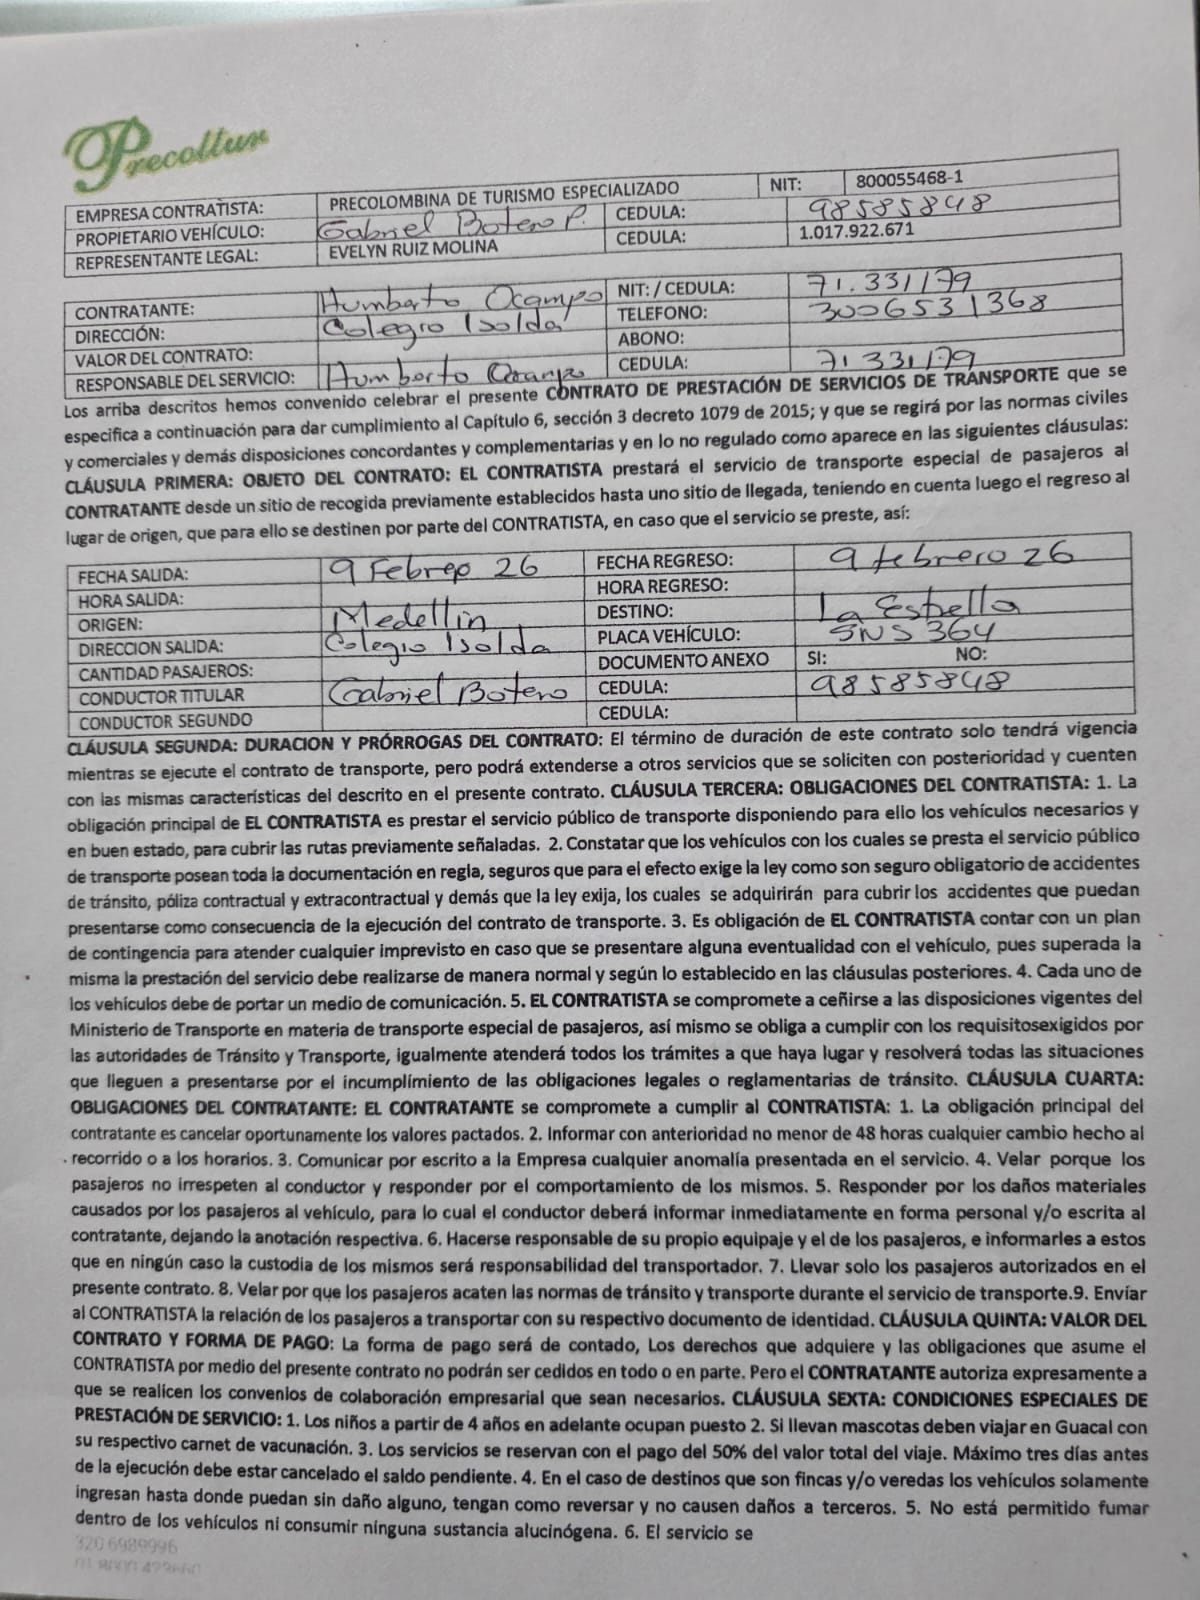 Precoltur
EMPRESA CONTRATISTA: PRECOLOMBINA DE TURISMO ESPECIALIZADO NIT: 800055468-1
PROPIETARIO VEHÍCULO: Gabriel Botero P. CEDULA: 98585848
REPRESENTANTE LEGAL: EVELYN RUIZ MOLINA CEDULA: 1.017.922.671
CONTRATANTE: Humberto Ocampo NIT: / CEDULA: 71.331179
DIRECCIÓN: Colegio Isolda TELEFONO: 3006531368
VALOR DEL CONTRATO: ABONO:
RESPONSABLE DEL SERVICIO: Humberto Ocampo CEDULA: 71331179
Los arriba descritos hemos convenido celebrar el presente CONTRATO DE PRESTACIÓN DE SERVICIOS DE TRANSPORTE que se
especifica a continuación para dar cumplimiento al Capítulo 6, sección 3 decreto 1079 de 2015; y que se regirá por las normas civiles
y comerciales y demás disposiciones concordantes y complementarias y en lo no regulado como aparece en las siguientes cláusulas:
CLÁUSULA PRIMERA: OBJETO DEL CONTRATO: EL CONTRATISTA prestará el servicio de transporte especial de pasajeros al
CONTRATANTE desde un sitio de recogida previamente establecidos hasta uno sitio de llegada, teniendo en cuenta luego el regreso al
lugar de origen, que para ello se destinen por parte del CONTRATISTA, en caso que el servicio se preste, así:
FECHA SALIDA: 9 Febrero 26 FECHA REGRESO: 9 febrero 26
HORA SALIDA: HORA REGRESO:
ORIGEN: Medellin DESTINO: La Estrella
DIRECCION SALIDA: Colegio Isolda PLACA VEHÍCULO: SNS 364
CANTIDAD PASAJEROS: DOCUMENTO ANEXO SI: NO:
CONDUCTOR TITULAR Gabriel Botero CEDULA: 98585848
CONDUCTOR SEGUNDO CEDULA:
CLÁUSULA SEGUNDA: DURACION Y PRÓRROGAS DEL CONTRATO: El término de duración de este contrato solo tendrá vigencia
mientras se ejecute el contrato de transporte, pero podrá extenderse a otros servicios que se soliciten con posterioridad y cuenten
con las mismas características del descrito en el presente contrato. CLÁUSULA TERCERA: OBLIGACIONES DEL CONTRATISTA: 1. La
obligación principal de EL CONTRATISTA es prestar el servicio público de transporte disponiendo para ello los vehículos necesarios y
en buen estado, para cubrir las rutas previamente señaladas. 2. Constatar que los vehículos con los cuales se presta el servicio público
de transporte posean toda la documentación en regla, seguros que para el efecto exige la ley como son seguro obligatorio de accidentes
de tránsito, póliza contractual y extracontractual y demás que la ley exija, los cuales se adquirirán para cubrir los accidentes que puedan
presentarse como consecuencia de la ejecución del contrato de transporte. 3. Es obligación de EL CONTRATISTA contar con un plan
de contingencia para atender cualquier imprevisto en caso que se presentare alguna eventualidad con el vehículo, pues superada la
misma la prestación del servicio debe realizarse de manera normal y según lo establecido en las cláusulas posteriores. 4. Cada uno de
los vehículos debe de portar un medio de comunicación. 5. EL CONTRATISTA se compromete a ceñirse a las disposiciones vigentes del
Ministerio de Transporte en materia de transporte especial de pasajeros, así mismo se obliga a cumplir con los requisitosexigidos por
las autoridades de Tránsito y Transporte, igualmente atenderá todos los trámites a que haya lugar y resolverá todas las situaciones
que lleguen a presentarse por el incumplimiento de las obligaciones legales o reglamentarias de tránsito. CLÁUSULA CUARTA:
OBLIGACIONES DEL CONTRATANTE: EL CONTRATANTE se compromete a cumplir al CONTRATISTA: 1. La obligación principal del
contratante es cancelar oportunamente los valores pactados. 2. Informar con anterioridad no menor de 48 horas cualquier cambio hecho al
recorrido o a los horarios. 3. Comunicar por escrito a la Empresa cualquier anomalía presentada en el servicio. 4. Velar porque los
pasajeros no irrespeten al conductor y responder por el comportamiento de los mismos. 5. Responder por los daños materiales
causados por los pasajeros al vehículo, para lo cual el conductor deberá informar inmediatamente en forma personal y/o escrita al
contratante, dejando la anotación respectiva. 6. Hacerse responsable de su propio equipaje y el de los pasajeros, e informarles a estos
que en ningún caso la custodia de los mismos será responsabilidad del transportador. 7. Llevar solo los pasajeros autorizados en el
presente contrato. 8. Velar por que los pasajeros acaten las normas de tránsito y transporte durante el servicio de transporte.9. Enviar
al CONTRATISTA la relación de los pasajeros a transportar con su respectivo documento de identidad. CLÁUSULA QUINTA: VALOR DEL
CONTRATO Y FORMA DE PAGO: La forma de pago será de contado, Los derechos que adquiere y las obligaciones que asume el
CONTRATISTA por medio del presente contrato no podrán ser cedidos en todo o en parte. Pero el CONTRATANTE autoriza expresamente a
que se realicen los convenios de colaboración empresarial que sean necesarios. CLÁUSULA SEXTA: CONDICIONES ESPECIALES DE
PRESTACIÓN DE SERVICIO: 1. Los niños a partir de 4 años en adelante ocupan puesto 2. Si llevan mascotas deben viajar en Guacal con
su respectivo carnet de vacunación. 3. Los servicios se reservan con el pago del 50% del valor total del viaje. Máximo tres días antes
de la ejecución debe estar cancelado el saldo pendiente. 4. En el caso de destinos que son fincas y/o veredas los vehículos solamente
ingresan hasta donde puedan sin daño alguno, tengan como reversar y no causen daños a terceros. 5. No está permitido fumar
dentro de los vehículos ni consumir ninguna sustancia alucinógena. 6. El servicio se
320 6989996